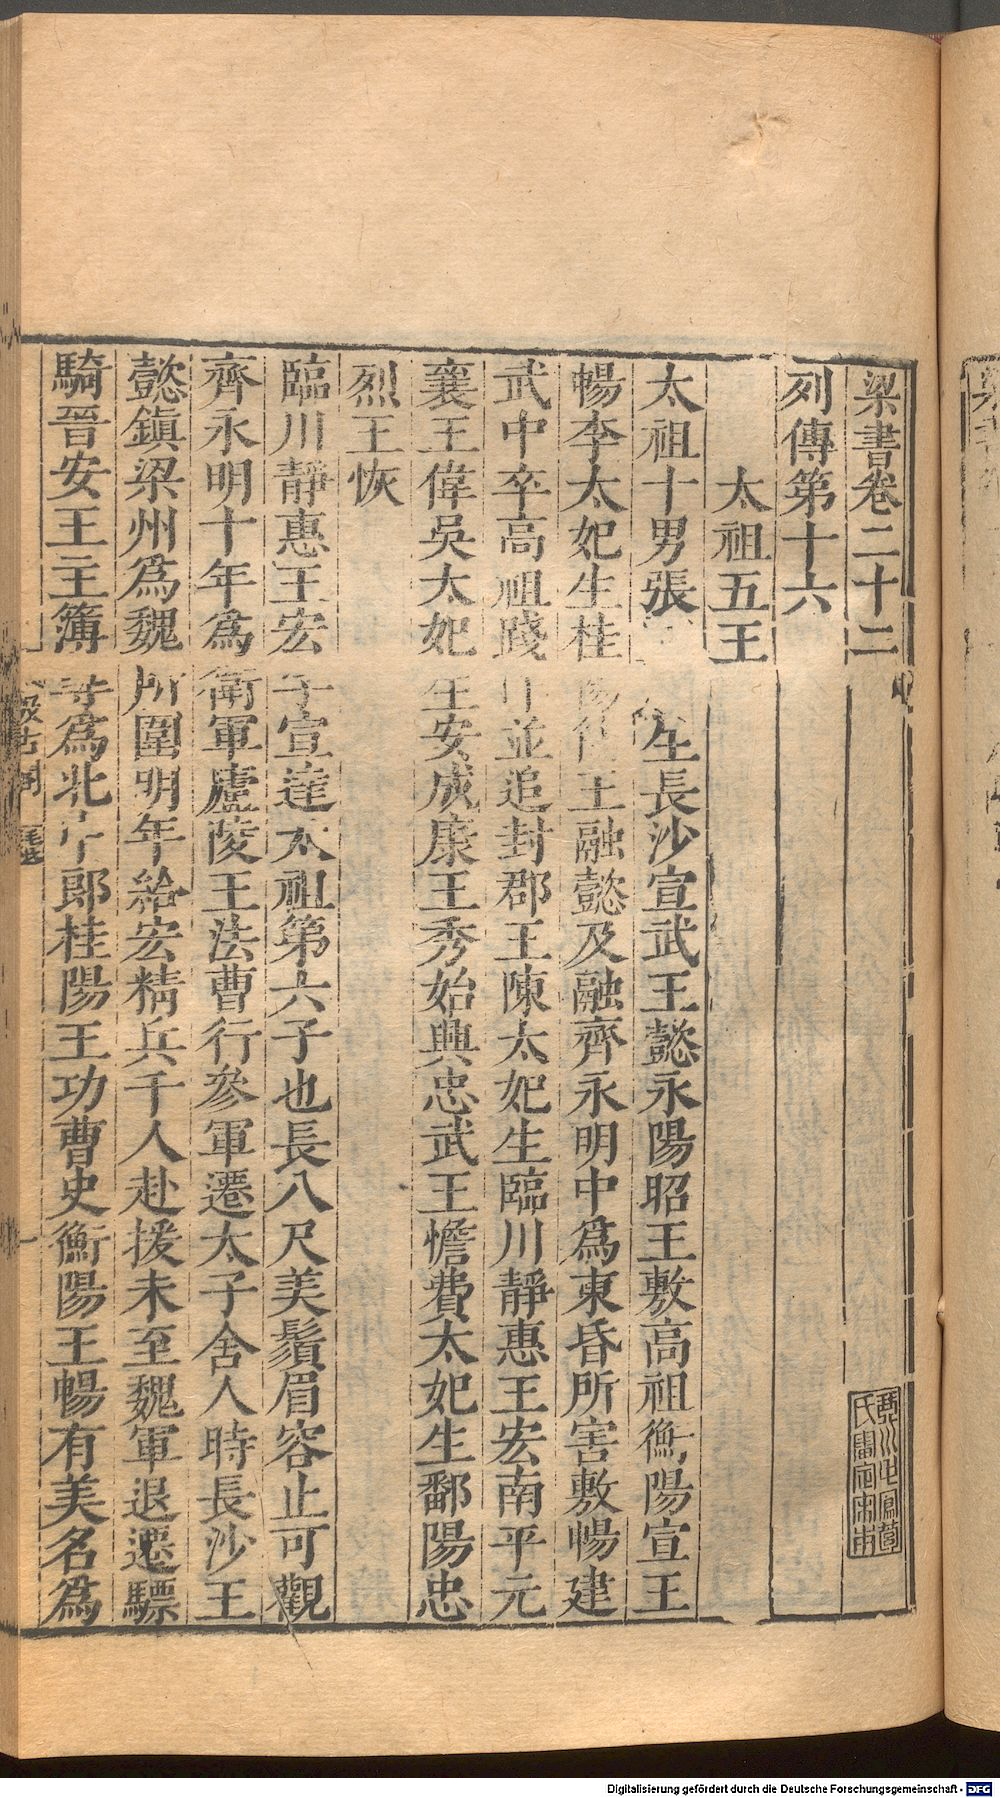 梁書卷二十二
列傳第十六
太祖五王
太祖十男張生長沙宣武王懿永陽昭王敷高祖衡陽宣王
暢李太妃生桂陽王融懿及融齊永明中爲東昏所害敷暢建
武中卒高祖踐並追封郡王陳太妃生臨川靜惠王宏南平元
襄王偉吳太妃生安成康王秀始興忠武王憺費太妃生鄱陽忠
烈王恢
臨川靜惠王宏字宣達太祖第六子也長八尺美鬚眉容止可觀
齊永明十年爲衛軍廬陵王法曹行參軍遷太子舍人時長沙王
懿鎭梁州爲魏所圍明年給宏精兵千人赴援未至魏軍退遷驃
騎晉安王主簿尋爲北中郎桂陽王功曹史衡陽王暢有美名爲
Digitalisierung gefördert durch die Deutsche Forschungsgemeinschaft - DFG